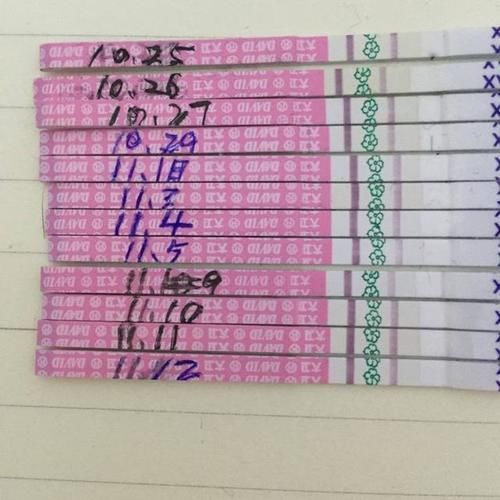 10.25
10.26
10.27
10.29
11.1日
11.3
11.4
11.5
11.9
11.10
11.11
11.12
DAVID 大卫